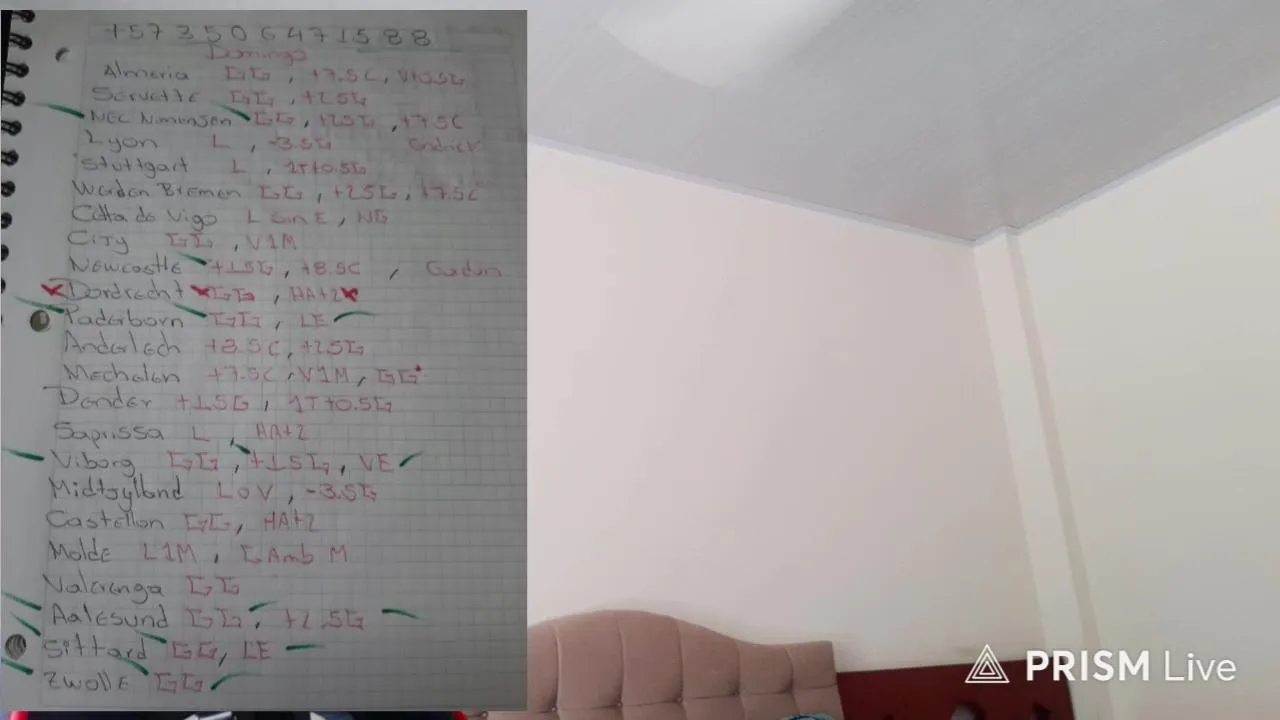 +57 350 6471588
Domingo
Almeria GG, +7.5C, V+0.5G
Servette GG, +2.5G
NEC Nimengen GG, +2.5G, +7.5C
Lyon L, -3.5G Endrick
Stuttgart L, 1T+0.5G
Werden Bremen GG, +2.5G, +7.5C
Celta de Vigo L Gin E, NG
City GG, V1M
Newcastle +1.5G, +8.5C, Gordon
Dordrecht GG, HA+2
Paderborn GG, LE
Anderlech +8.5C, +2.5G
Mechelen +7.5C, V1M, GG*
Dender +1.5G, 1T+0.5G
Saprissa L, HA+2
Viborg GG, +1.5G, VE
Midtjylland LoV, -3.5G
Castellon GG, HA+2
Molde L1M, GAmb M
Valerenga GG
Aalesund GG, +2.5G
Sittard GG, LE
Zwolle GG
PRISM Live